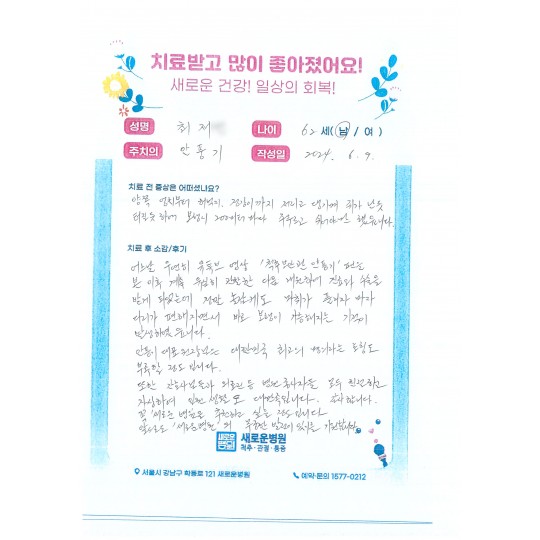 치료받고 많이 좋아졌어요!
새로운 건강! 일상의 회복!
성명 최 재 나이 62 세(남 / 여)
주치의 안풍기 작성일 2024. 6. 9.
치료 전 증상은 어떠셨나요?
양쪽 엉치부터 허벅지, 까지 저리고 땡기며
보행시 200미터마다 했습니다.
치료 후 소감/후기
어느날 우연히 유튜브 영상 '척추모만편 안풍기' 편을
본 이후 계속 유심히 관찰한 이후 내원하여 진료와 수술을
받게 되었는데 정말 놀랍게도 마취가 풀리자 마자
다리가 편해지면서 바로 보행이 가능해지는 기적이
발생하였습니다.
안풍기 대표원장님은 대한민국 최고의 명의라는 도
부족할 정도입니다.
또한 간호사님들과 의료진 등 병원 종사자들 모두 친절하고
자상하여 입원 생활도 대만족입니다. 감사합니다.
꼭 '새로운 병원'을 추천하고 싶은 정도입니다
앞으로도 '새로운병원'의 무궁한 발전이 있기를 기원합니다.
새로운병원
척추·관절·통증
서울시 강남구 학동로 121 새로운병원 예약·문의 1577-0212